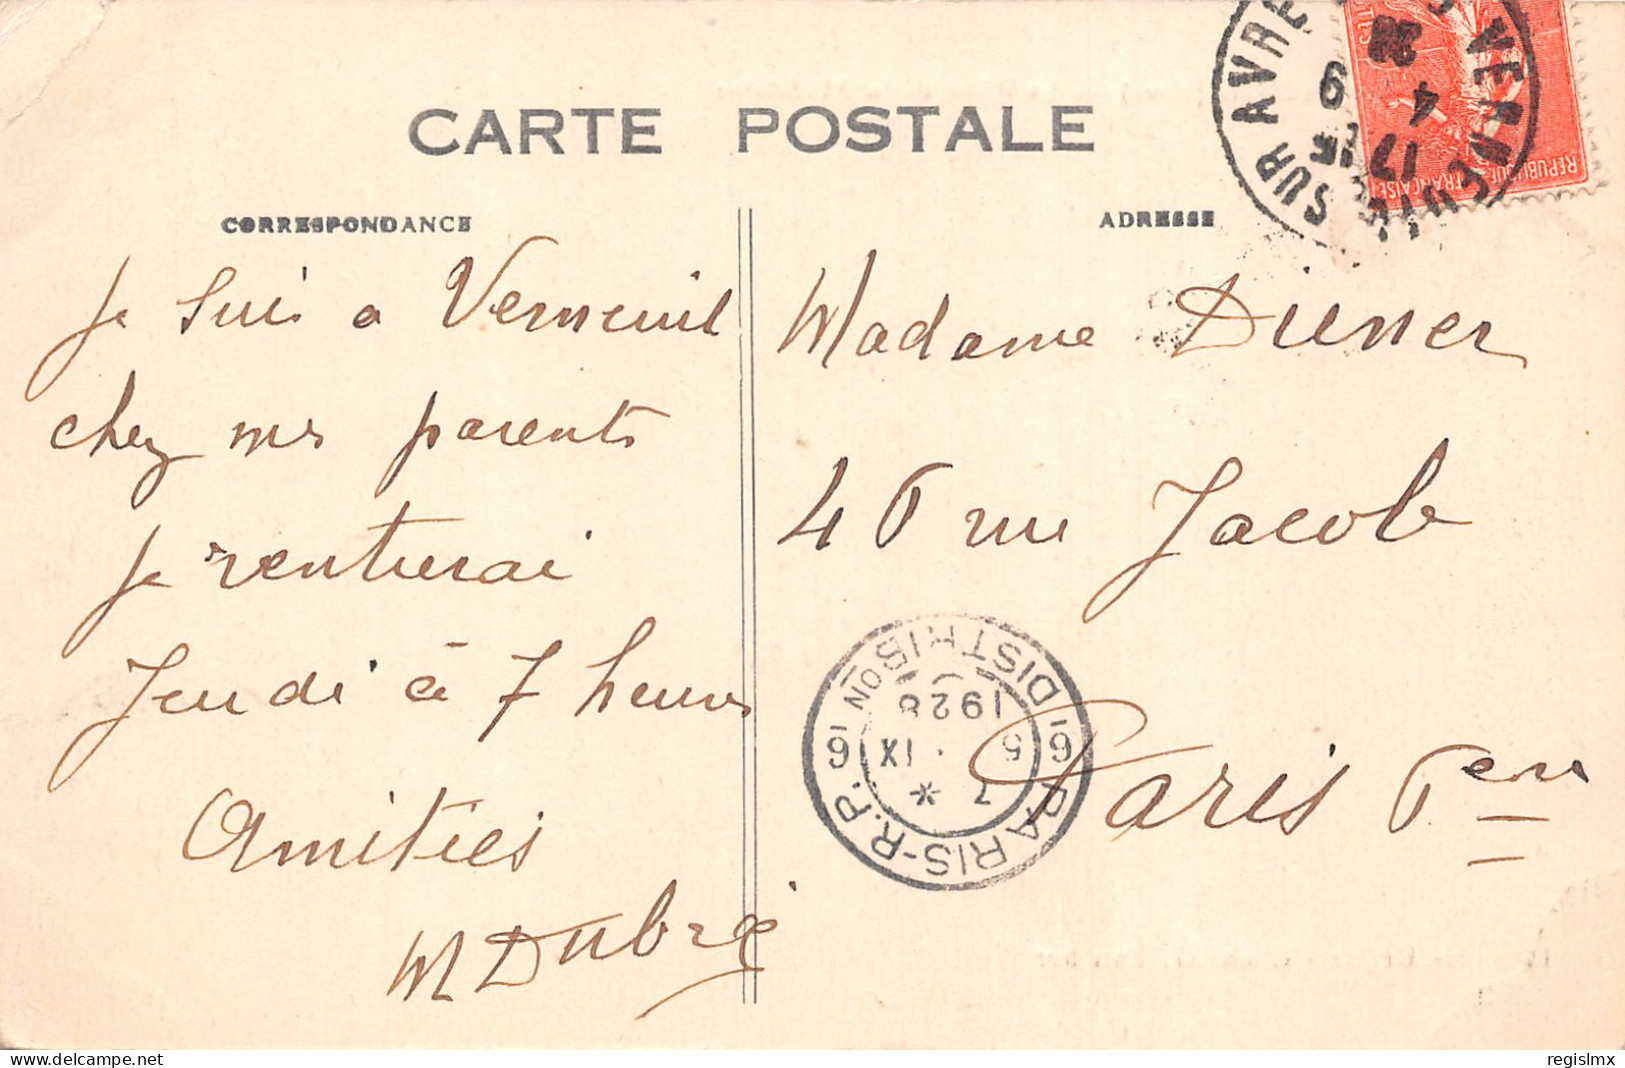 CARTE POSTALE
CORRESPONDANCE
je suis a Verneuil
chez mes parents
je rentrerai
Jeudi à 7 heures
Amitiés
M Dubré
ADRESSE
Madame Diener
46 rue Jacob
Paris 6em
VERNEUIL SUR AVRE
17
4 9
28
REPUBLIQUE FRANÇAISE
PARIS-R.P. 6
DISTRIBON
6
7 *
5 IX
1928
regislmx